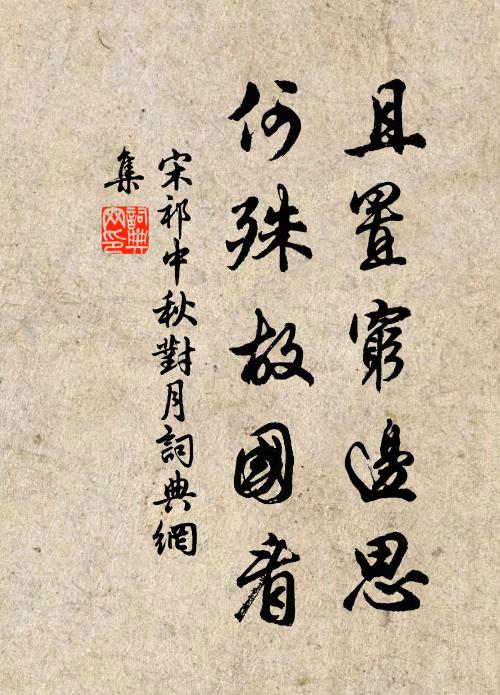 且置窮邊思
何殊故國看
宋祁中秋對月詞典網
集
詞典
网印